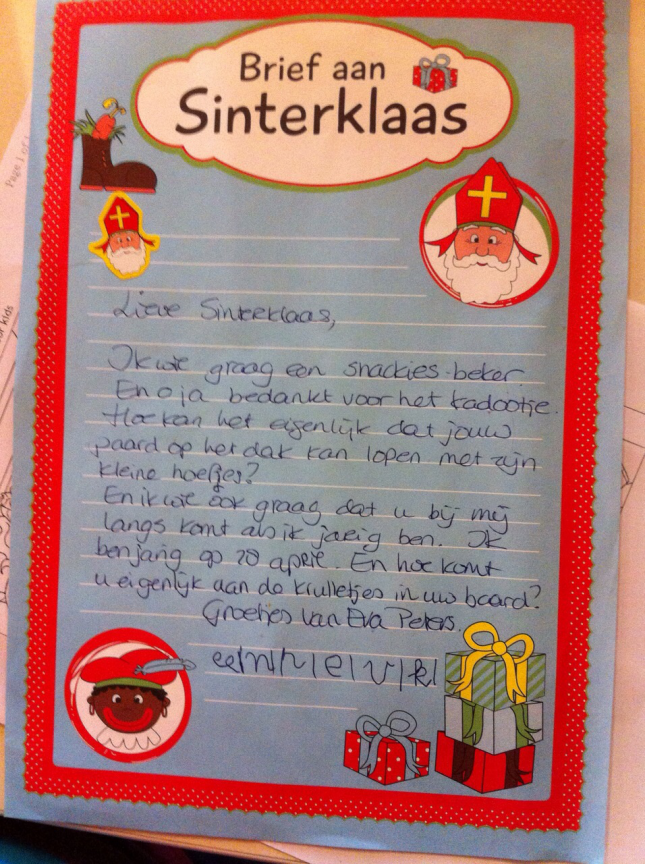 Brief aan
Sinterklaas
Lieve Sinterklaas,
Ik wie graag een snackies-beker.
En o ja bedankt voor het kadootje.
Hoe kan het eigenlijk dat jouw
paard op het dak kan lopen met zijn
kleine hoefjes?
En ik wie ook graag dat u bij mij
langs komt als ik jarig ben. Ik
ben jarig op 28 april. En hoe komt
u eigenlijk aan de krulletjes in uw baard?
Groetjes van Eva Peters.
Page 1 of
or kids